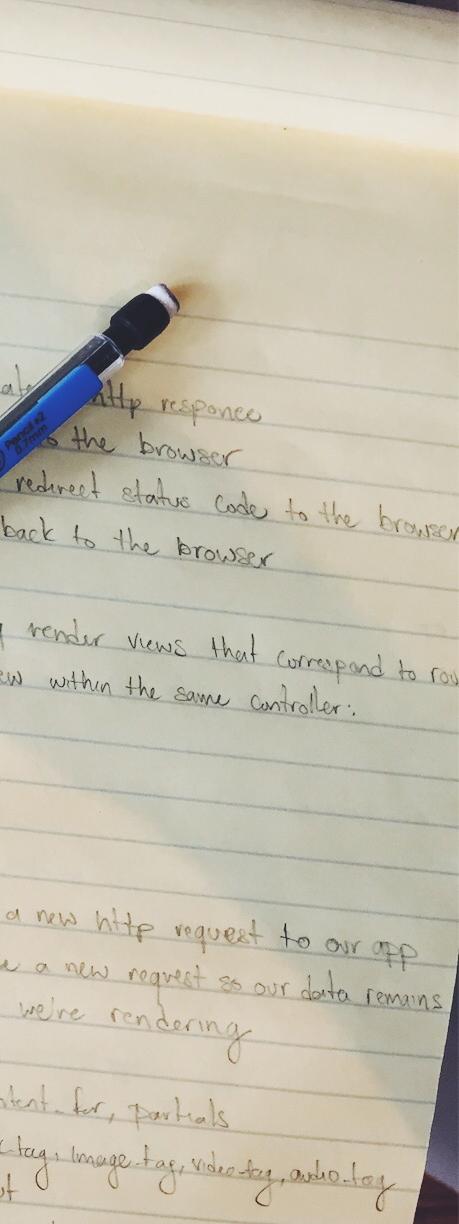 http responce
Pencil #2
0.7mm
the browser
redirect status code to the browser
back to the browser
render views that correspond to rou
ew within the same controller:
a new http request to our app
e a new request so our data remains
we're rendering
ntent_for, partials
tag, image_tag, video_tag, audio_tag